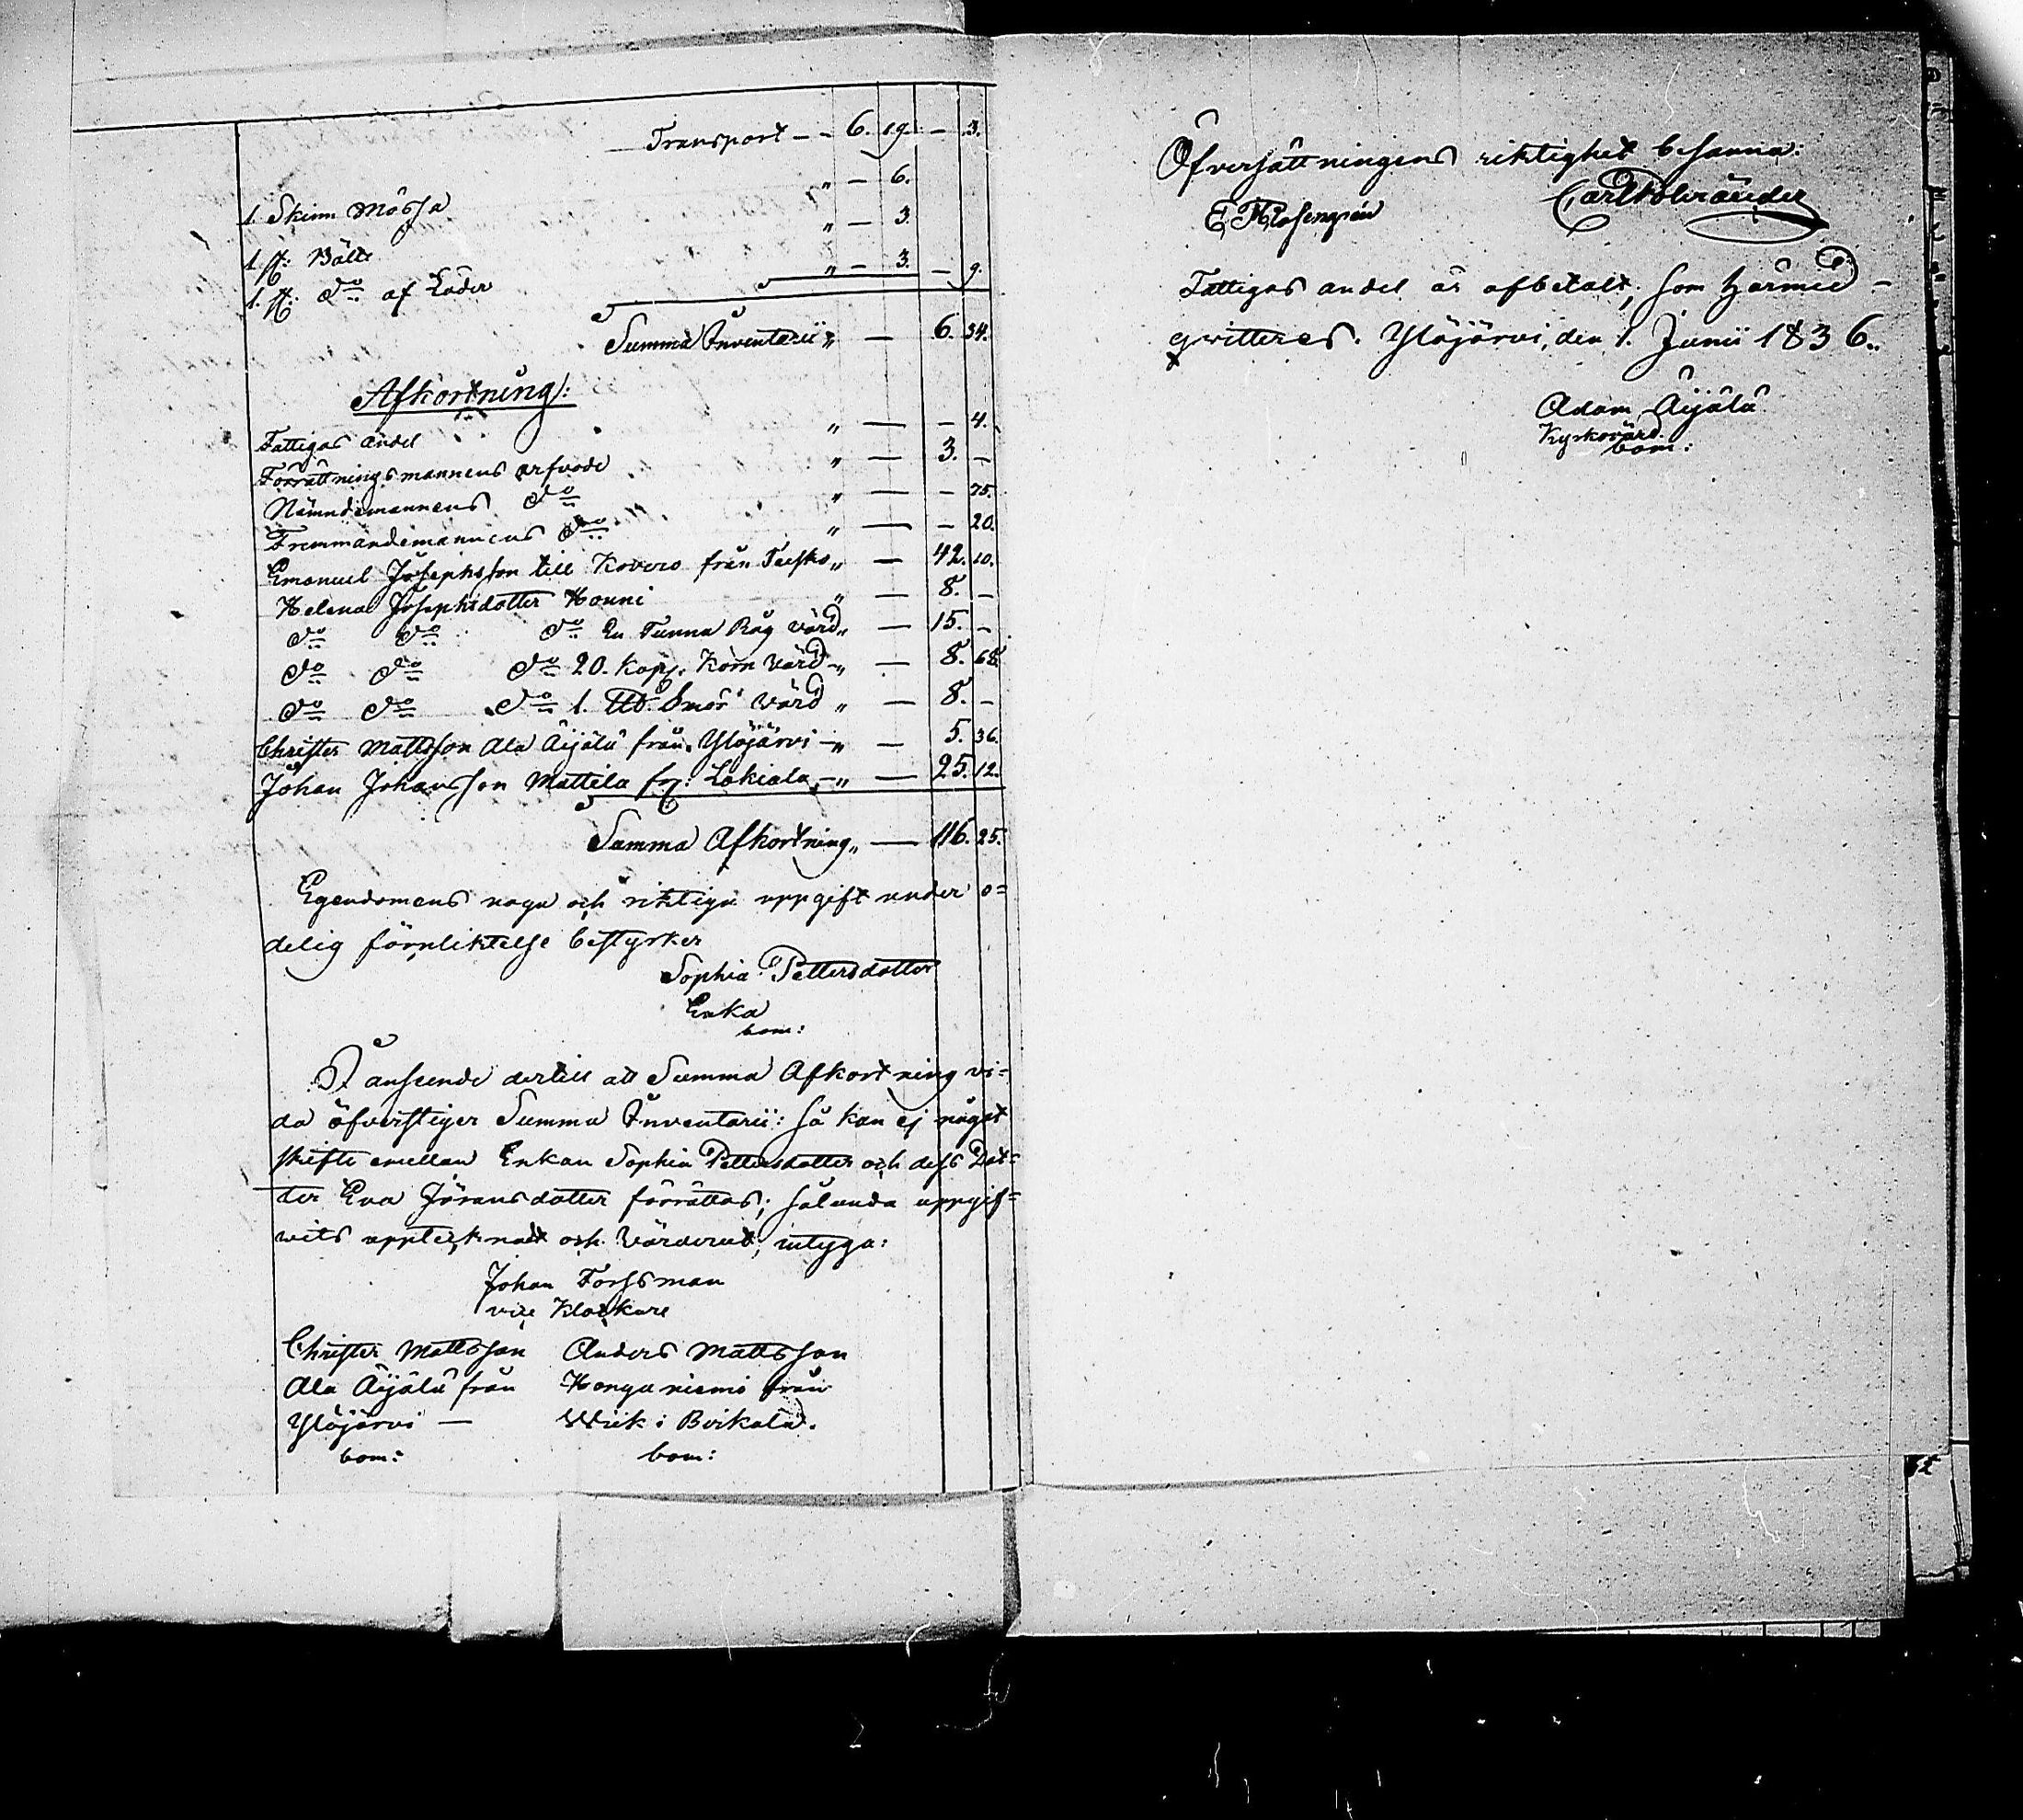 Transport — - 6. 19. — 3.
1. Skinn Mössa " — 6.
1 st: Bälte " — 3.
1. st: Do af Läder " — 3. — 9.
Summa Inventarii " — 6. 34.
Afkortning:
Fattigas andel " — — 4.
Förrättningsmannens arfvode " — 3. —
Nämndemannens Do " — — 75.
Fremmandemannens Do " — — 20.
Emanuel Josephsson till Kovero från Teisko " — 42. 10.
Helena Josephsdotter Honni " — 8. —
Do Do Do En Tunna Råg värd " — 15. —
Do Do Do 20. Kapp. Korn värd " — 8. 68.
Do Do Do 1. LU. Smör värd " — 8. —
Christer Mattsson Ala Äijälä från Ylöjärvi — " — 5. 36.
Johan Johansson Mattila fr: Lakiala — " — 25. 12.
Summa Afkortning " — 116. 25.
Egendomens noga och riktiga uppgift under e=
delig förpliktelse bestyrker
Sophia Pettersdotter
Enka
bom:
I anseende dertill att Summa Afkortning vi-
da öfverstiger Summa Inventarii: så kan ej något
skifte emellan Enkan Sophia Pettersdotter och dess Dot=
ter Eva Jöransdotter förrättas; sålunda uppgif=
wits upptecknadt och värderat, intyga:
Johan Forssman
vice Klockare
Christer Mattsson Anders Mattsson
Ala Äijälä från Honganiemi från
Ylöjärvi — Wiik i Birkala.
bom: bom:
Öfversättningens riktighet besanna:
E Rosengrén Carl
Fattigas andel är afbetalt, som härmed -
qvitteres. Ylöjärvi, den 1. Junii 1836.
Adam Äijälä
Kyrkovärd.
bom: